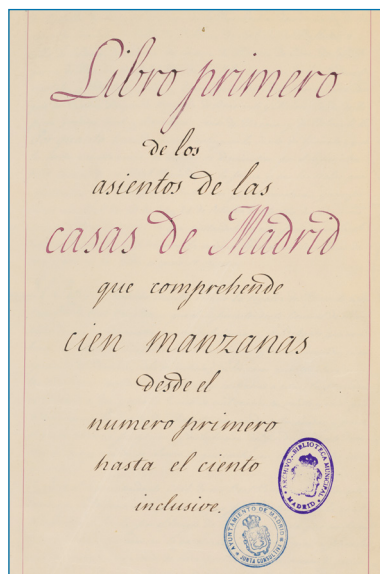 Libro primero
de los
asientos de las
casas de Madrid
que comprehende
cien manzanas
desde el
numero primero
hasta el ciento
inclusive.
ARCHIVO-BIBLIOTECA MUNICIPAL
MADRID
AYUNTAMIENTO DE MADRID